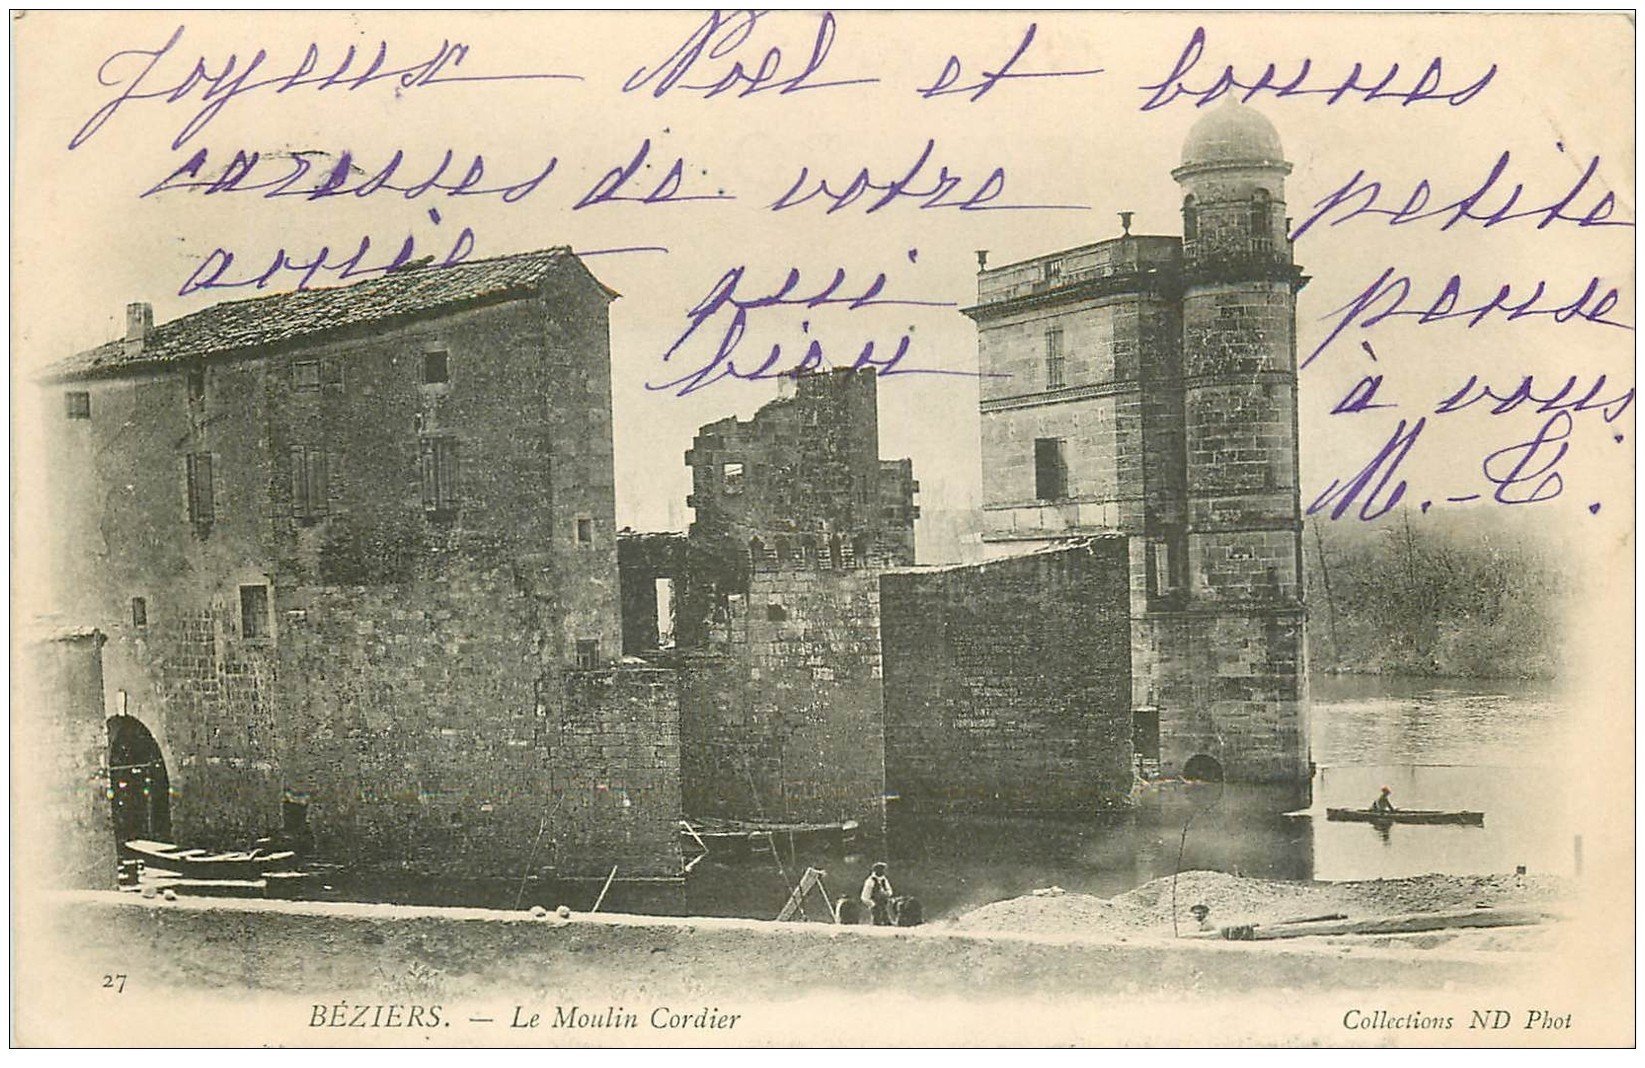 Joyeux Noël et bonnes
caresses de votre petite
amie qui pense
bien à vous.
M.-C.
27
BÉZIERS. — Le Moulin Cordier
Collections ND Phot